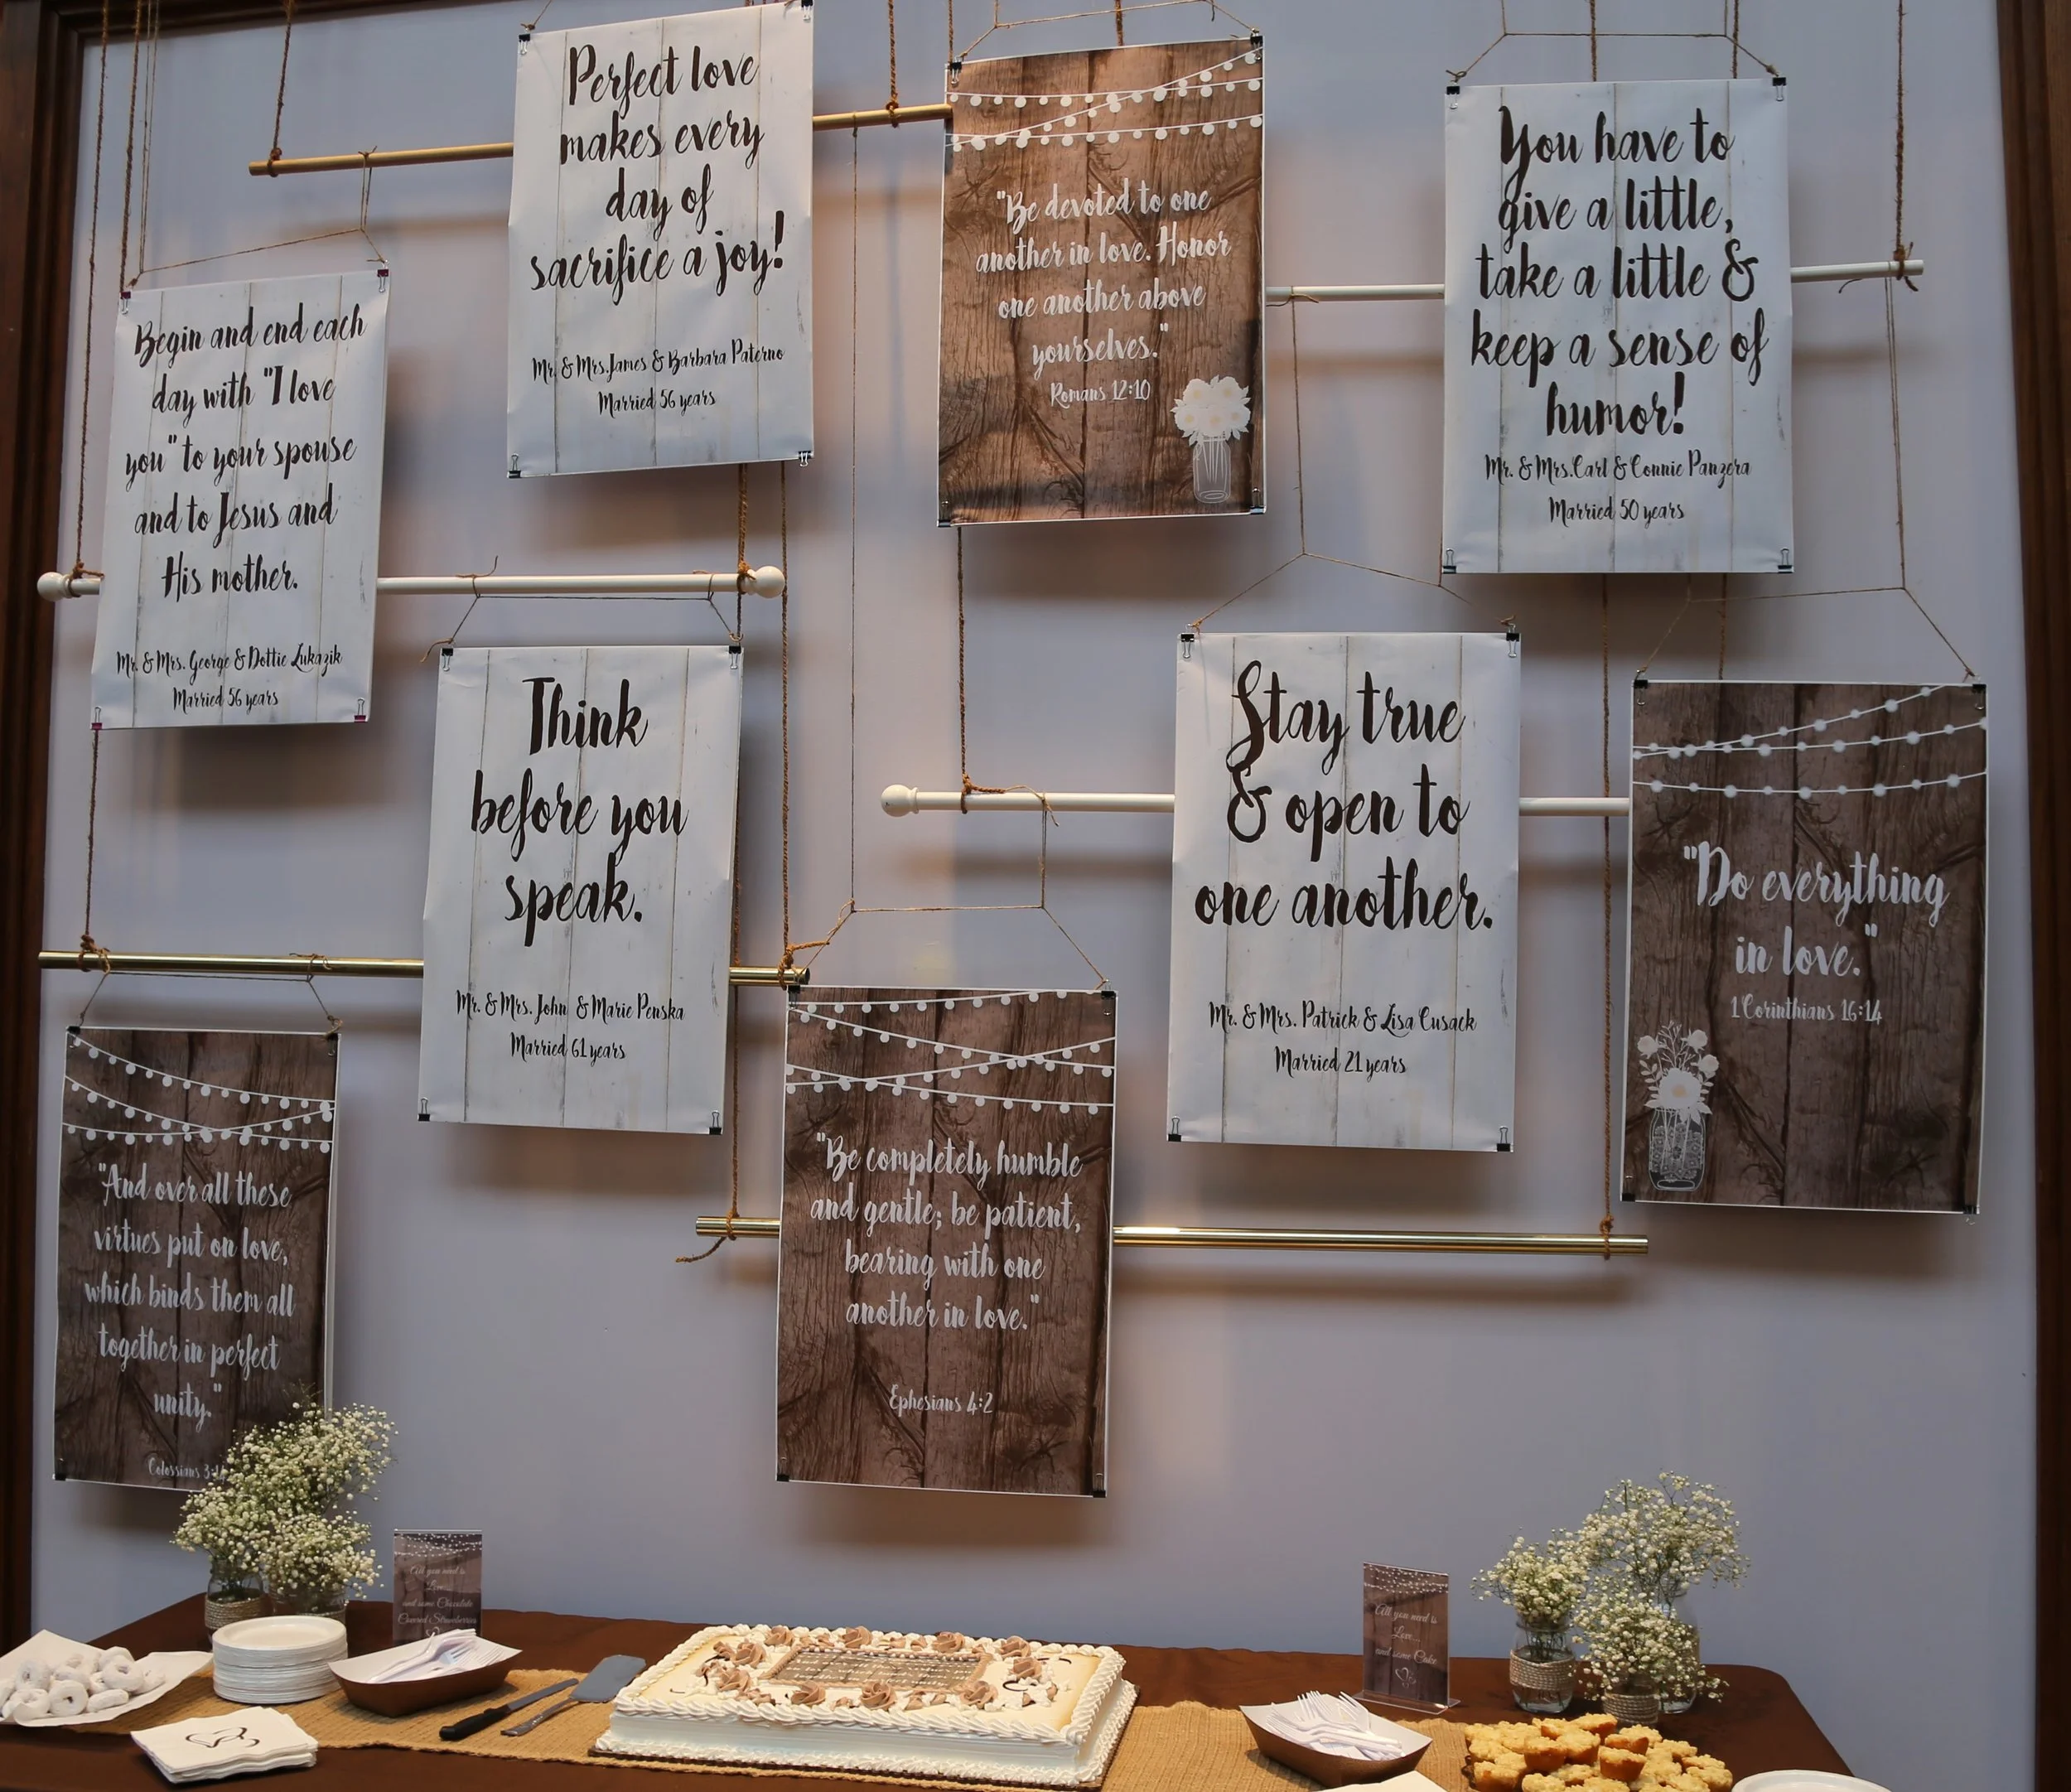 Perfect love
makes every
day of
sacrifice a joy!
Mr. & Mrs.James & Barbara Paterno
Married 56 years
"Be devoted to one
another in love. Honor
one another above
yourselves."
Romans 12:10
You have to
give a little,
take a little &
keep a sense of
humor!
Mr. & Mrs.Carl & Connie Panzera
Married 50 years
Begin and end each
day with "I love
you" to your spouse
and to Jesus and
His mother.
Mr. & Mrs. George & Dottie Lukazik
Married 56 years
Think
before you
speak.
Mr. & Mrs. John & Marie Penska
Married 61 years
Stay true
& open to
one another.
Mr. & Mrs. Patrick & Lisa Cusack
Married 21 years
"Do everything
in love."
1 Corinthians 16:14
"And over all these
virtues put on love,
which binds them all
together in perfect
unity."
Colossians 3:14
"Be completely humble
and gentle; be patient,
bearing with one
another in love."
Ephesians 4:2
All you need is
Love
and some Chocolate
Covered Strawberries
All you need is
Love...
and some Cake